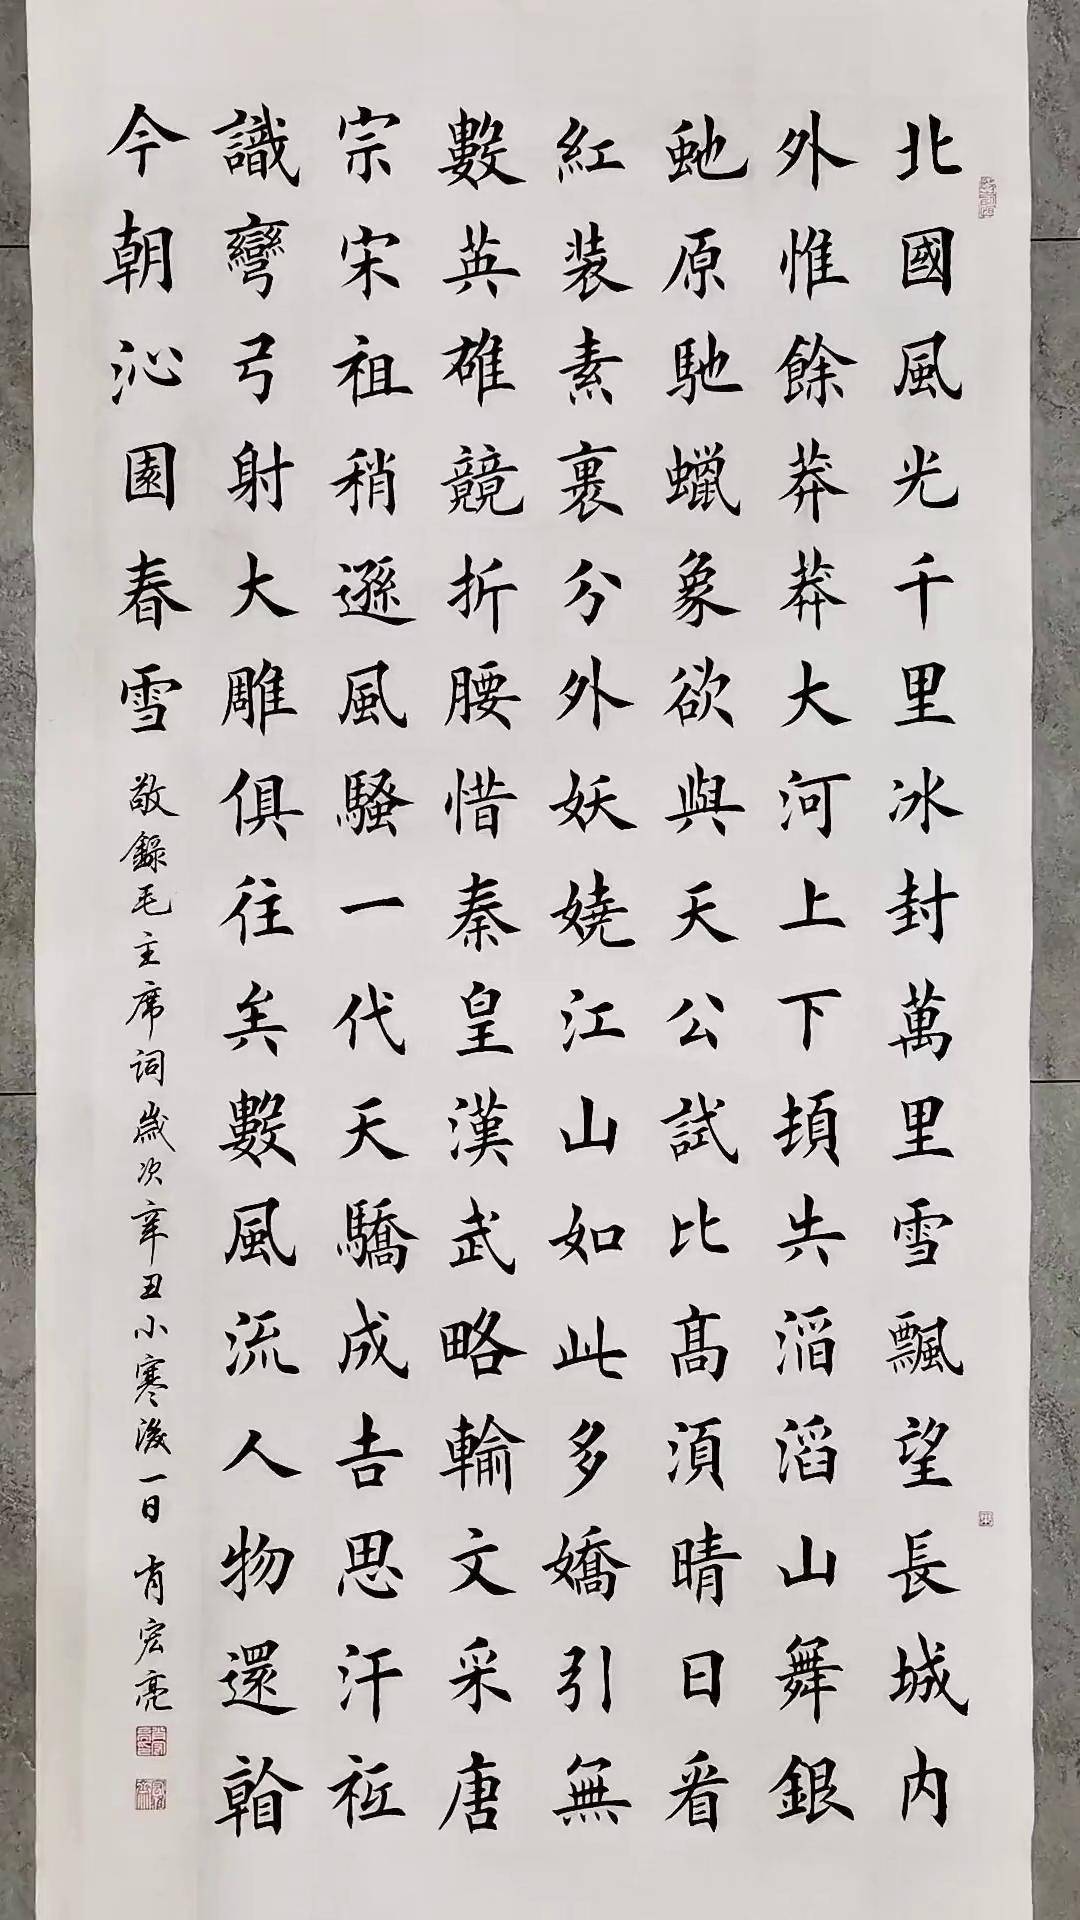 北國風光千里冰封萬里雪飄望長城内
外惟餘莽莽大河上下頓失滔滔山舞銀
虵原馳蠟象欲與天公試比髙須晴日看
紅装素裹分外妖嬈江山如此多嬌引無
數英雄競折腰惜秦皇漢武略輸文采唐
宗宋祖稍遜風騷一代天驕成吉思汗祗
識彎弓射大雕俱往矣數風流人物還㫪
今朝沁園春雪 敬錄毛主席詞歲次辛丑小寒後一日 肖宏亮